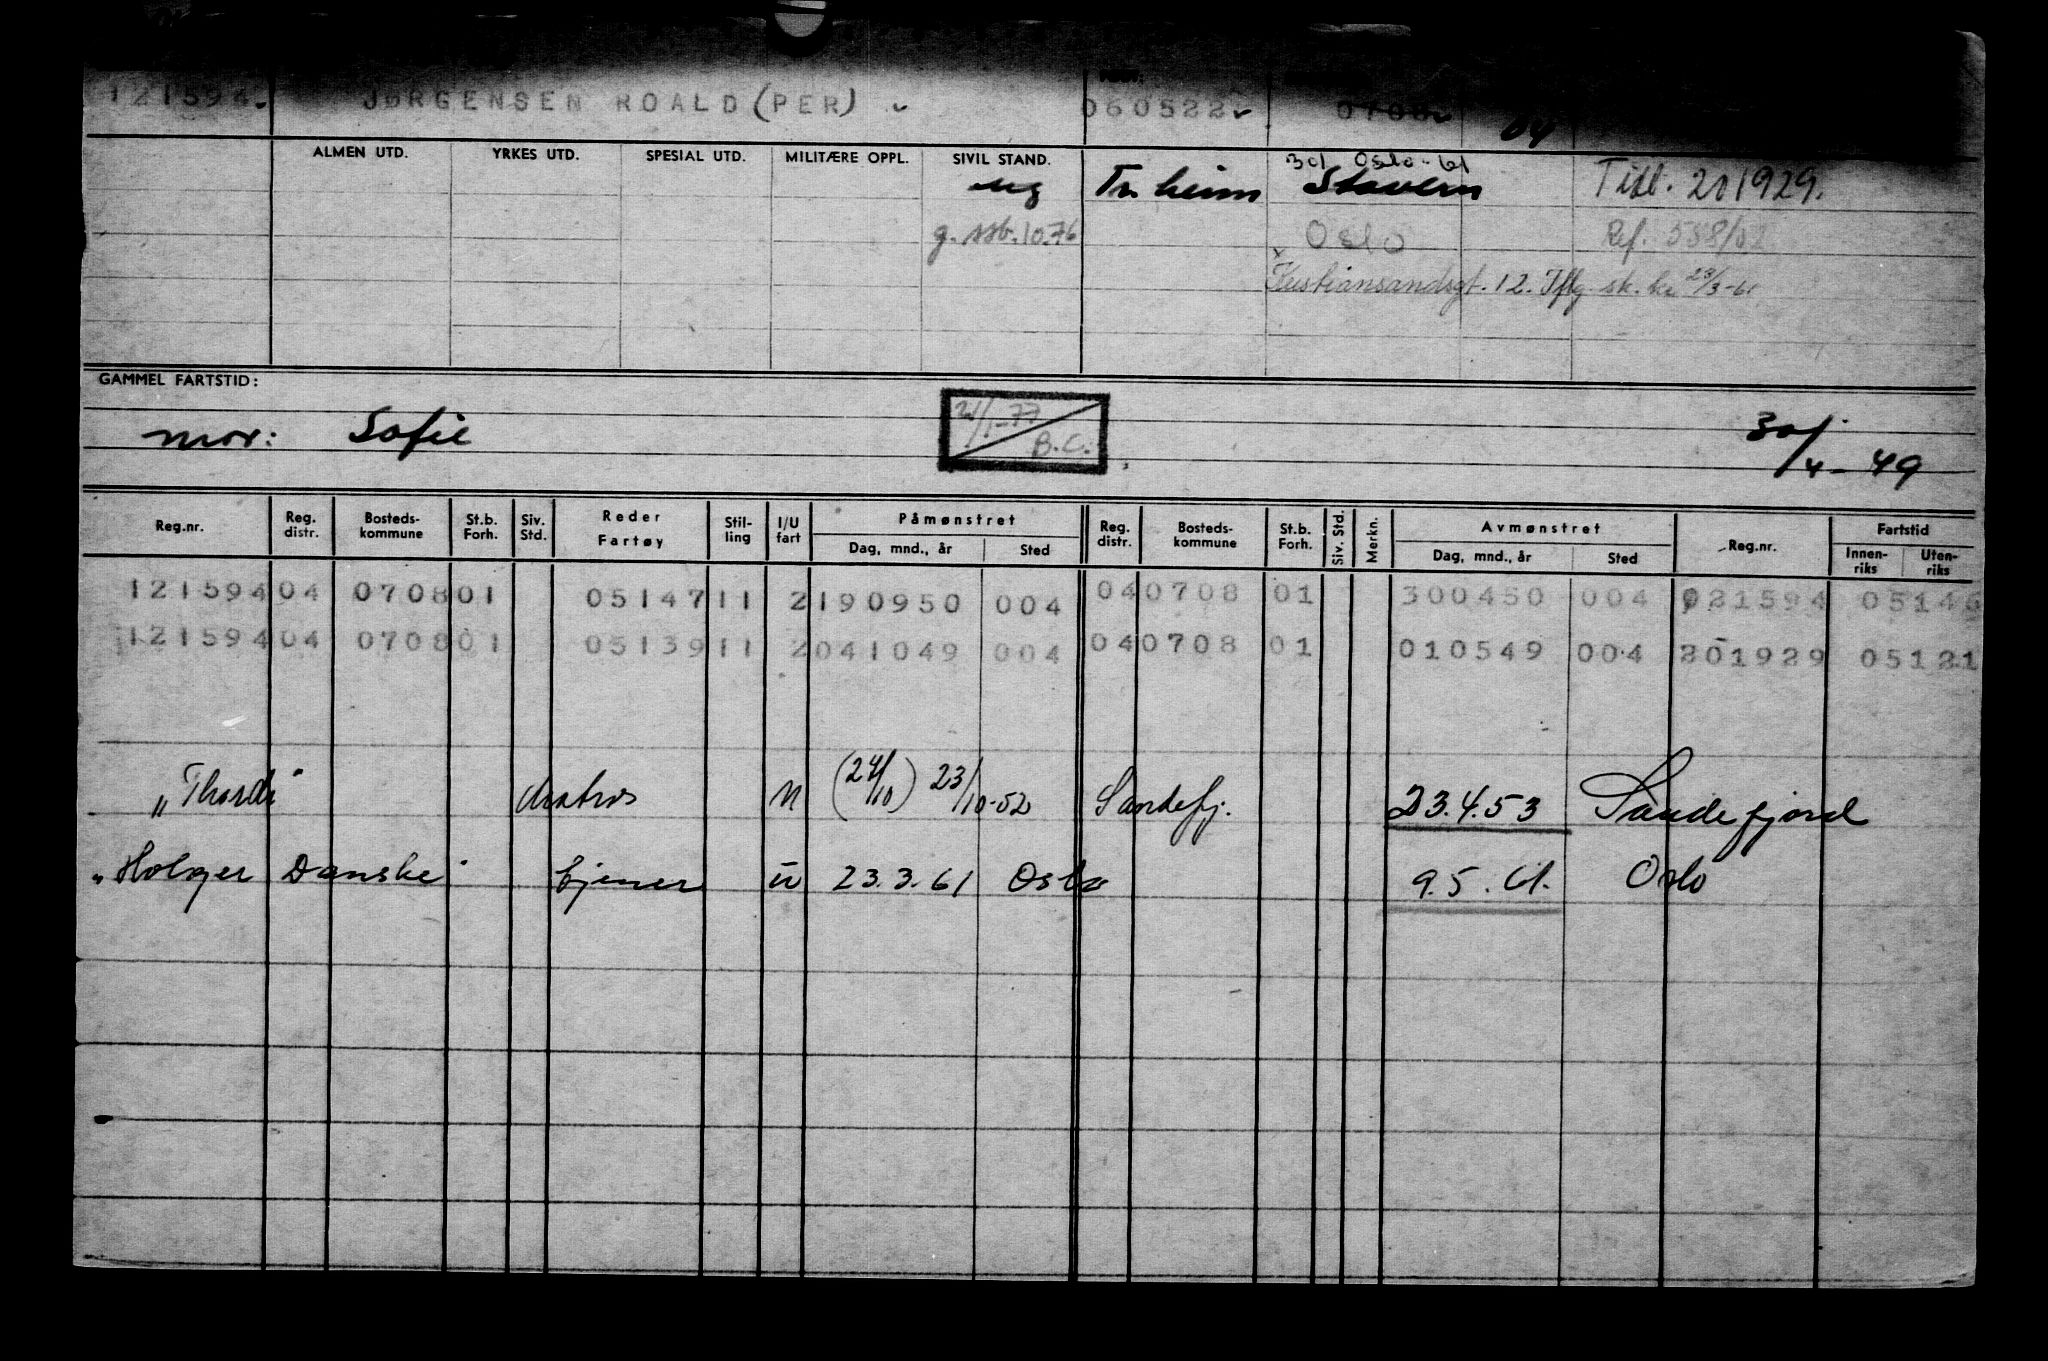 121594. JØRGENSEN ROALD (PER) 060522 0708 04
ALMEN UTD. YRKES UTD. SPESIAL UTD. MILITÆRE OPPL. SIVIL STAND.
301 Oslo - 61
ug Tr.heim Stavern Tidl. 201929.
g. ssb. 10.76 Oslo Ref. 538/52
Kristiansandsgt. 12. Iflg sk. ke 23/3-61
GAMMEL FARTSTID:
21/1-77 B.C.
mor: Sofie 30/4-49
Reg.nr. Reg. distr. Bosteds-kommune St.b. Forh. Siv. Std. Reder Fartøy Stil-ling I/U fart Påmønstret Dag, mnd., år Sted Reg. distr. Bosteds-kommune St.b. Forh. Siv. Std. Merkn. Avmønstret Dag, mnd., år Sted Reg.nr. Fartstid Innen-riks Uten-riks
121594 04 0708 01 05147 11 2 190950 004 04 0708 01 300450 004 121594 05146
121594 04 0708 01 05139 11 2 041049 004 04 0708 01 010549 004 201929 05121
"Thordi Matros U (24/10) 23/10-52 Sandefj. 23.4.53 Sandefjord
"Holger Danske tjener U 23.3.61 Oslo 9.5.61. Oslo